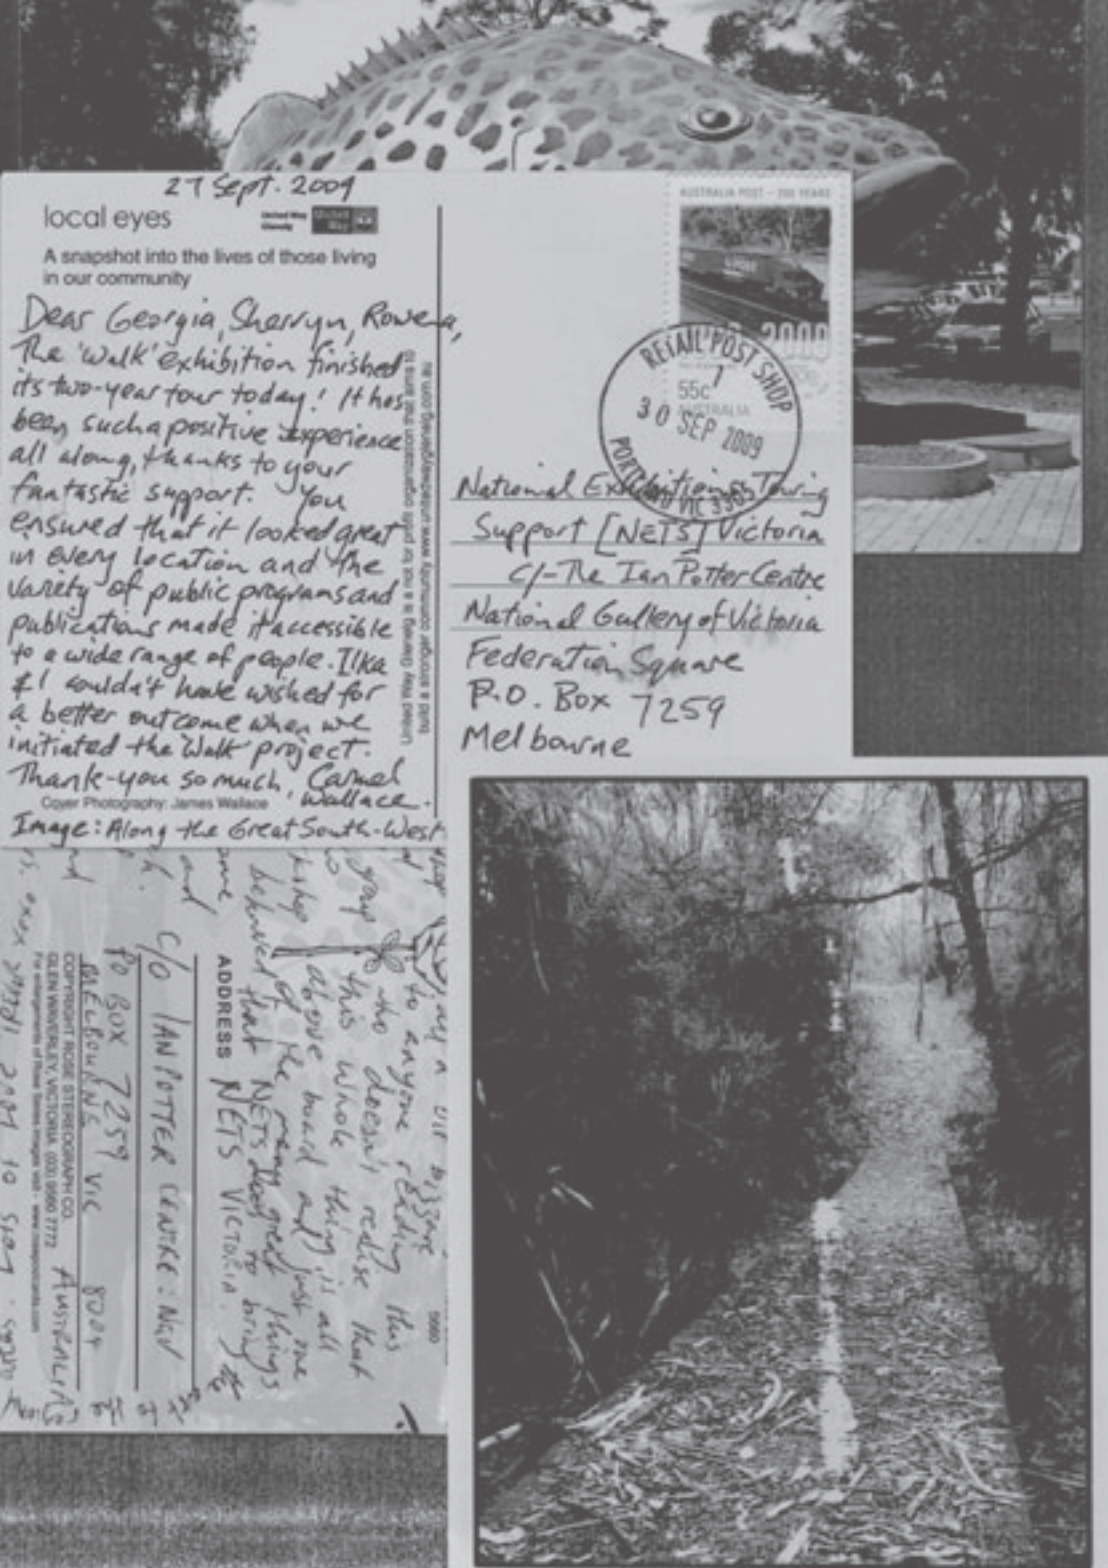 27 Sept. 2009
local eyes
A snapshot into the lives of those living
in our community
Dear Georgia, Sherryn, Rowena,
The 'Walk' exhibition finished
its two-year tour today! It has
been such a positive experience
all along, thanks to your
fantastic support. You
ensured that it looked great
in every location and the
variety of public programs and
publications made it accessible
to a wide range of people. Ilka
& I couldn't have wished for
a better outcome when we
initiated the Walk project.
Thank-you so much, Carmel
Wallace.
Cover Photography: James Wallace
Image: Along the Great South-West
United Way Glenelg is a not for profit organization that aims to
build a stronger community www.unitedwayglenelg.org.au
AUSTRALIA POST - 200 YEARS
2009
55c
AUSTRALIA
RETAIL POST SHOP
7
30 SEP 2009
PORTLAND VIC 3305
National Exhibitions Touring
Support [NETS] Victoria
c/- The Ian Potter Centre
National Gallery of Victoria
Federation Square
P.O. Box 7259
Melbourne
to anyone reading this
group who doesn't realise that
this whole thing is all
above board and just one
of the many great things
that NETS does to bring the
ADDRESS
NETS VICTORIA
C/O IAN POTTER CENTRE: NGV
PO BOX 7259
MELBOURNE VIC 8024
AUSTRALIA
COPYRIGHT ROSE STEREOGRAPH CO.
GLEN WAVERLEY, VICTORIA (03) 9560 7772